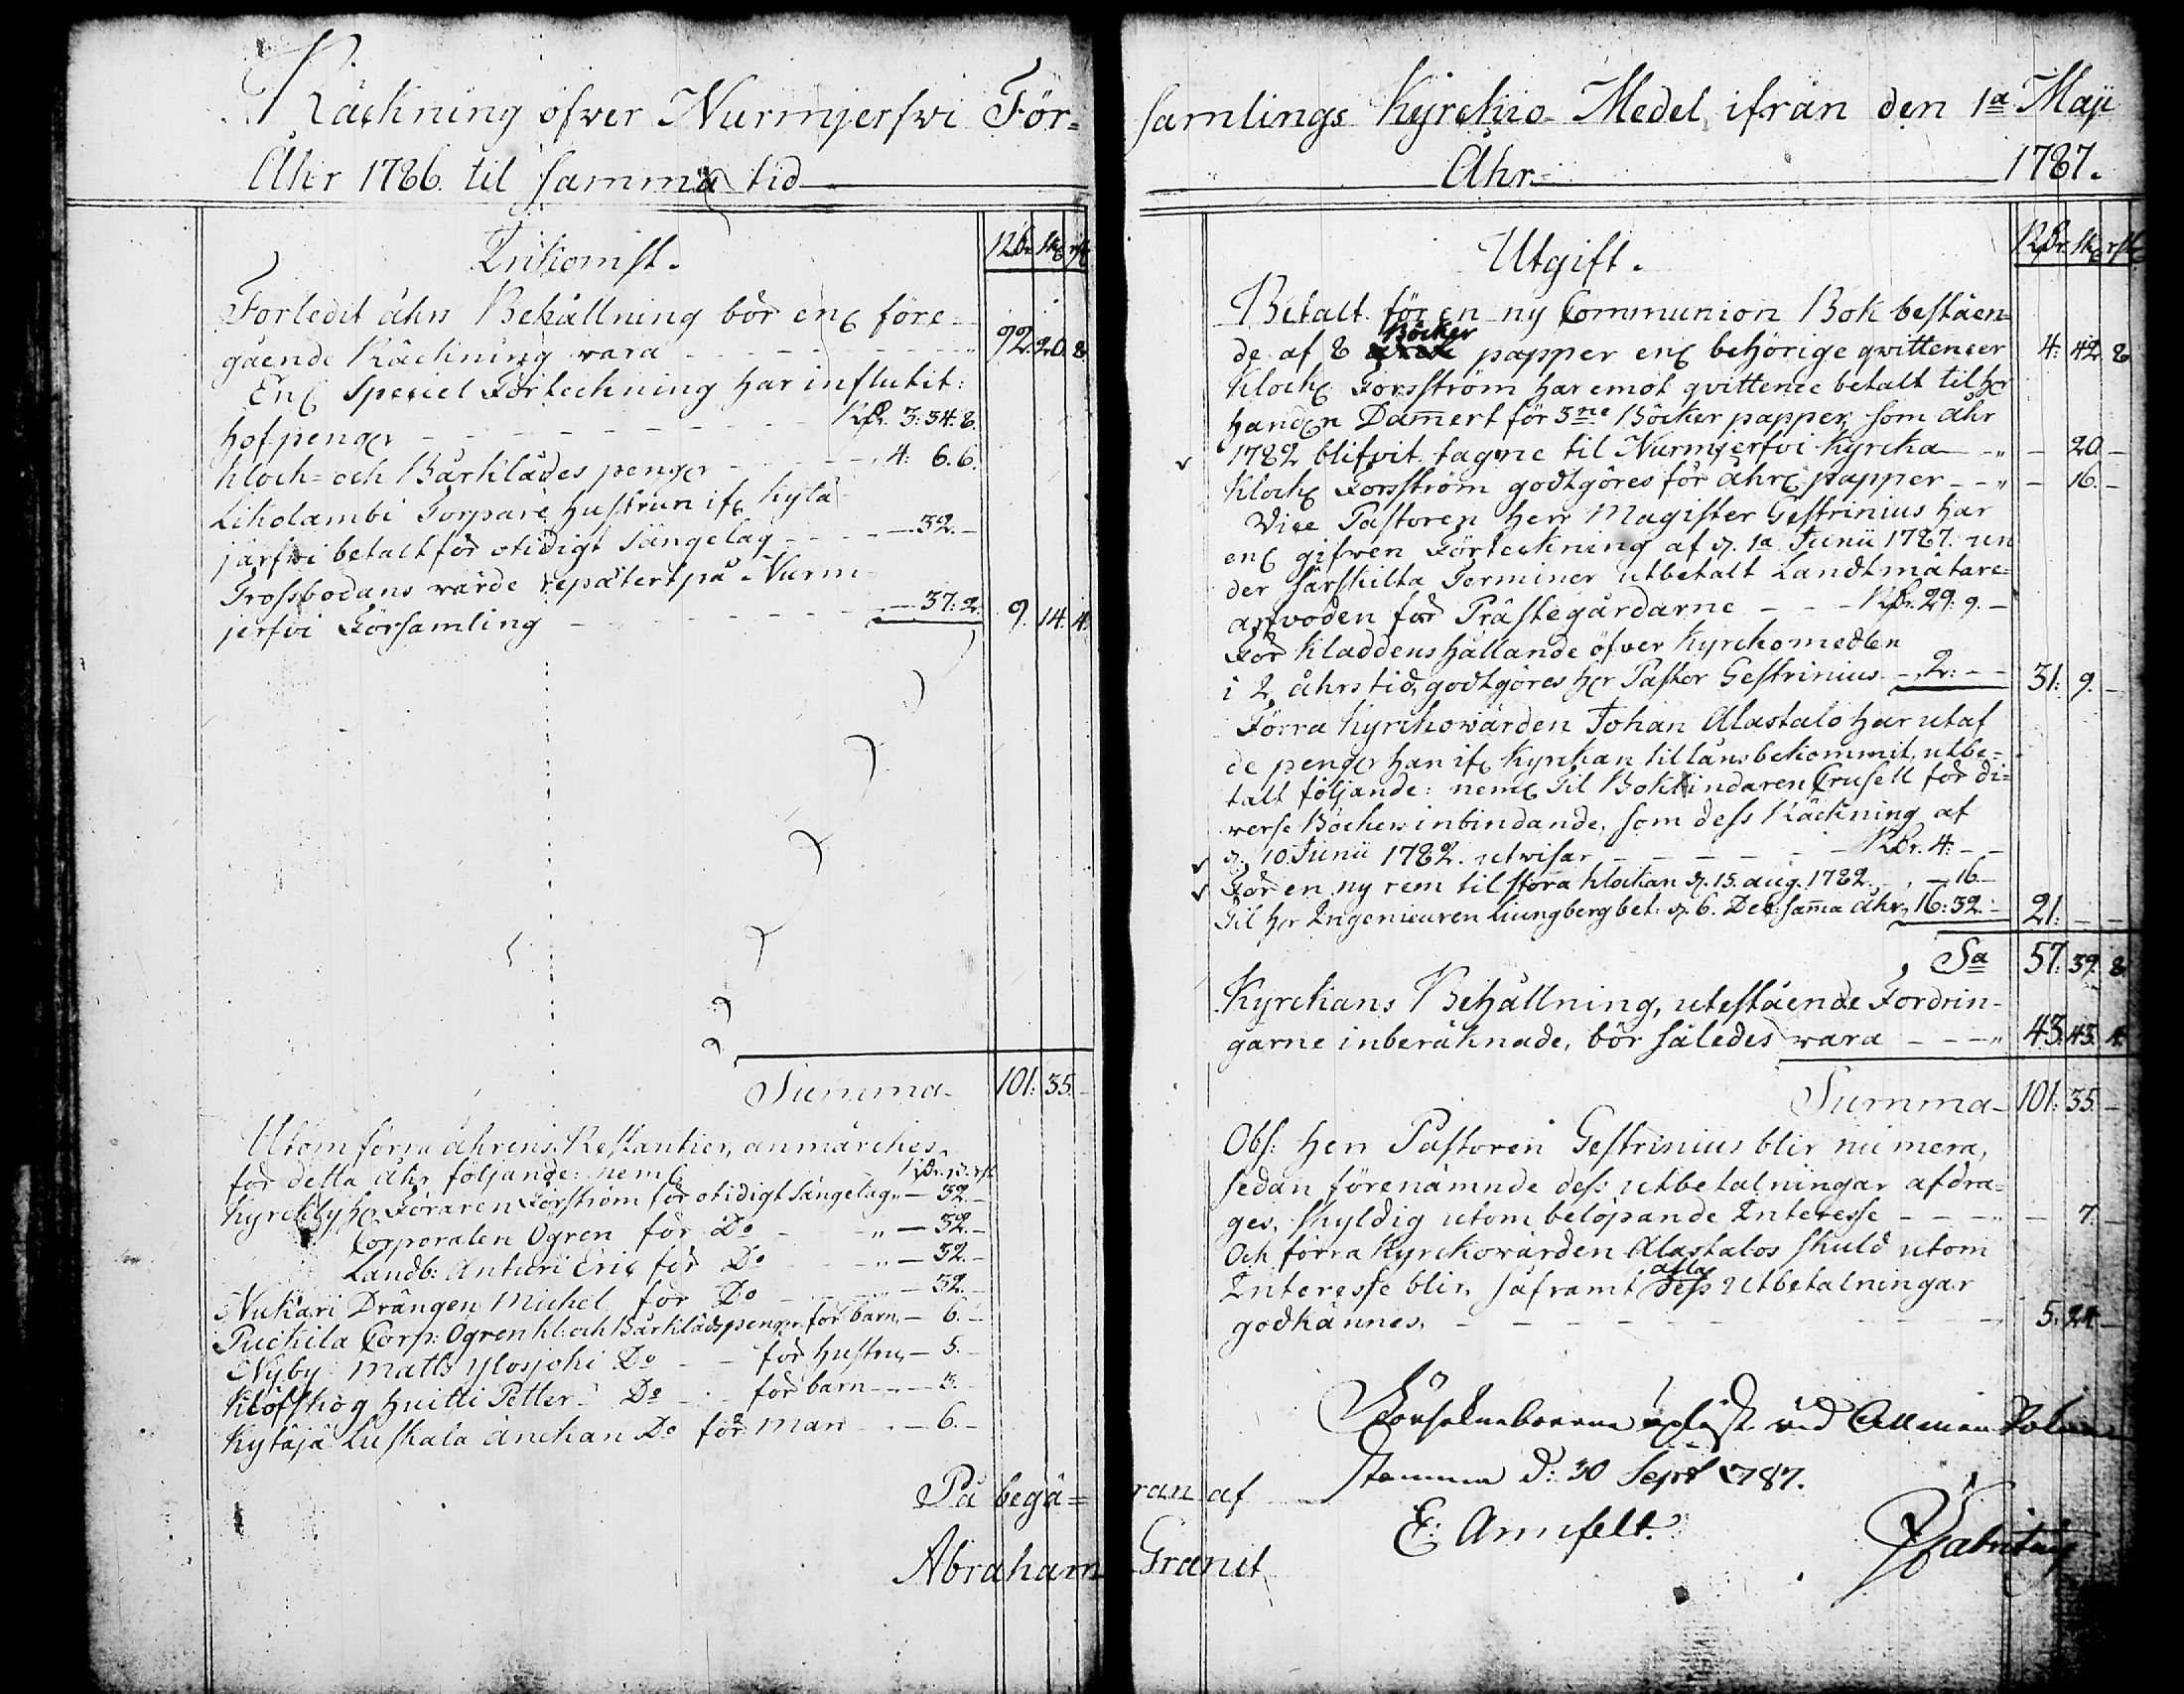 Räckning öfver Nurmjerfvi För=
Åhr 1786. til samma tid
Inkomst.
RDr. sk rst
Förledit åhrs Behållning bör enl före-
gående Räckning vara 92. 20. 8
Enl Speciel Förteckning har influtit:
Hofpengr RDr. 3: 34: 8.
Klock= och Bårklädes pengr 4: 6. 6.
Likolambi Torpare Hustrun ifr Kytä
järfvi betalt för otidigt Sängelag 32.
Trossbodans värde repatert på Nurm-
jerfvi Församling 37: 2. 9. 14. 4.
Summa 101: 35. -
Utom förra åhrens Restantier, anmärckes
för detta åhr följande: neml
RDr. sk. rst
Kyrckby Hr Föraren Forsström för otidigt Sängelag 32.
Corporalen Ögren för Do 32.
Landb: Anturi Eric för Do 32.
Nukari Drängen Michel för Do 32.
Puckila Corp: Ögren kl: och Bårklädspengr för barn 6.
Nyby Matts Ylosjoki Do för Hustru 5.
Klöfskog Huitti Petter Do för barn 3.
Kytäjä Luskala änckan Do för Man 6.
På begä=
Abraham
samlings Kyrcko-Medel, ifrån den 1a Maji
Åhr 1787.
Utgift.
RDr. sk rst
Betalt för en ny Communion Bok beståen=
Böcker
de af 8 papper enl behörige qvittencer 4: 42. 8
Klock Forsström har emot qvittence betalt til Hr
Handln Dammert för 3ne Böcker papper, som åhr
1782 blifvit tagne til Nurmjerfvi Kyrcka - 20 -
Klock Forsström godtgöres för åhrl papper - 16. -
Vice Pastoren Herr Magister Gestrinius har
enl gifven Förteckning af d. 1a Junii 1787. un
der särskilta Terminer utbetalt Landtmätare=
arfvoden för Prästegårdarne RDr. 29: 9. -
För Kladdens hållande öfver Kyrckomedlen
i 2 åhrs tid, godtgöres Hr Pastor Gestrinius 2: - - 31: 9. -
Förra Kyrckovärden Johan Alastalo har utaf
de pengr han ifr Kyrckan til låns bekommit, utbe=
talt följande: neml Til Bokbindaren Crusell för di=
verse Böckers inbindande, som dess Räckning af
d. 10. Junii 1782. utvisar RDr. 4: - -
För en ny rem til stora klockan d. 15. aug. 1782 - 16 -
Til Hr Ingenieuren Liungberg bet: d. 6. Dec: samma åhr 16: 32. - 21: - -
Sa 57: 39. 8
Kyrckans Behållning, utestående Fordrin-
garne inberäknade, bör således vara 43. 43. 4.
Summa 101: 35. -
Obs: Herr Pastoren Gestrinius blir nu mera,
sedan förenämnde dess utbetalningar afdra=
ges, skyldig utom belöpande Interesse - 7. -
Och förra Kyrckovärden Alastalos skuld utom
alla
Interesse blir, såframt dess Utbetalningar
godkännes, 5. 24. -
Sockneboerne upläst vid Allmän Sokne
stemma d: 30 Sept 1787.
ran af
E: Armfelt.
Granit